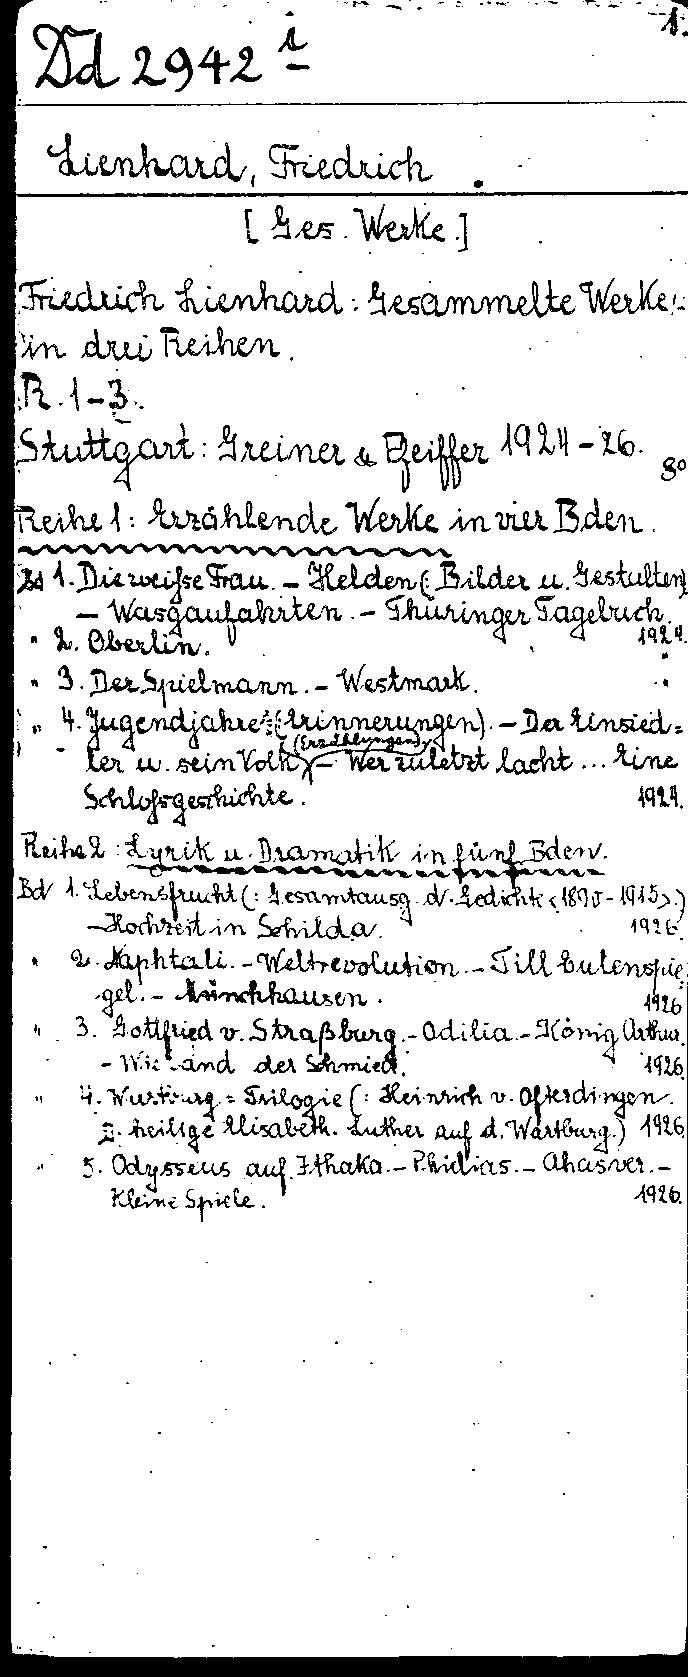 1.
Dd 2942 i
Lienhard, Friedrich
[Ges. Werke.]
Friedrich Lienhard: Gesammelte Werke
in drei Reihen.
R. 1-3.
Stuttgart: Greiner & Pfeiffer 1924-26.
8°
Reihe 1: Erzählende Werke in vier Bden.
Bd 1. Die weisse Frau. - Helden (: Bilder u. Gestalten)
- Wasgaufahrten. - Thüringer Tagebuch.
1924.
" 2. Oberlin. "
" 3. Der Spielmann. - Westmark. "
" 4. Jugendjahre (: Erinnerungen). - Der Einsied=
(Erzählungen)
ler u. sein Volk - Wer zuletzt lacht ... Eine
Schlossgeschichte. 1924.
Reihe 2: Lyrik u. Dramatik in fünf Bden.
Bd 1. Lebensfrucht (: Gesamtausg. d. Gedichte <1890-1915>.)
- Hochzeit in Schilda. 1926.
" 2. Naphtali. - Weltrevolution. - Till Eulenspie
gel. - Münchhausen. 1926
" 3. Gottfried v. Straßburg. - Odilia. - König Arthur.
- Wieland der Schmied. 1926.
" 4. Wartburg=Trilogie (: Heinrich v. Ofterdingen.
D. heilige Elisabeth. Luther auf d. Wartburg.) 1926.
" 5. Odysseus auf Ithaka. - Phidias. - Ahasver. -
Kleine Spiele. 1926.